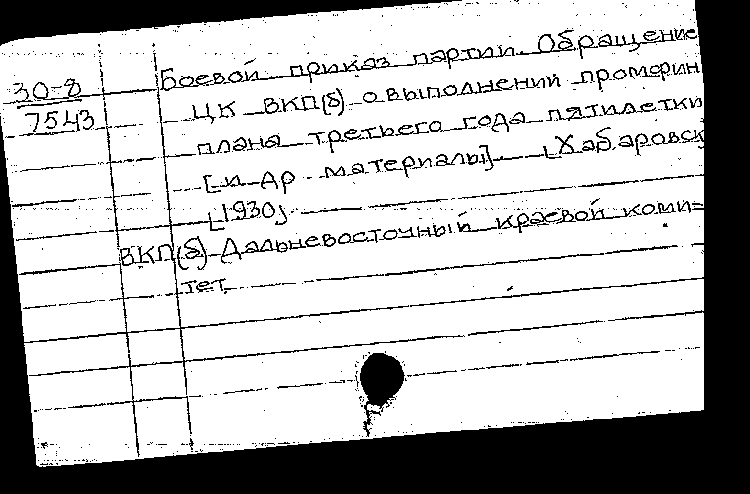 30-8
7543
Боевой приказ партии. Обращение
ЦК ВКП(б) о выполнений промфин
плана третьего года пятилетки
[и др материалы] [Хабаровск
[1930]
ВКП(б) Дальневосточный краевой коми-
тет